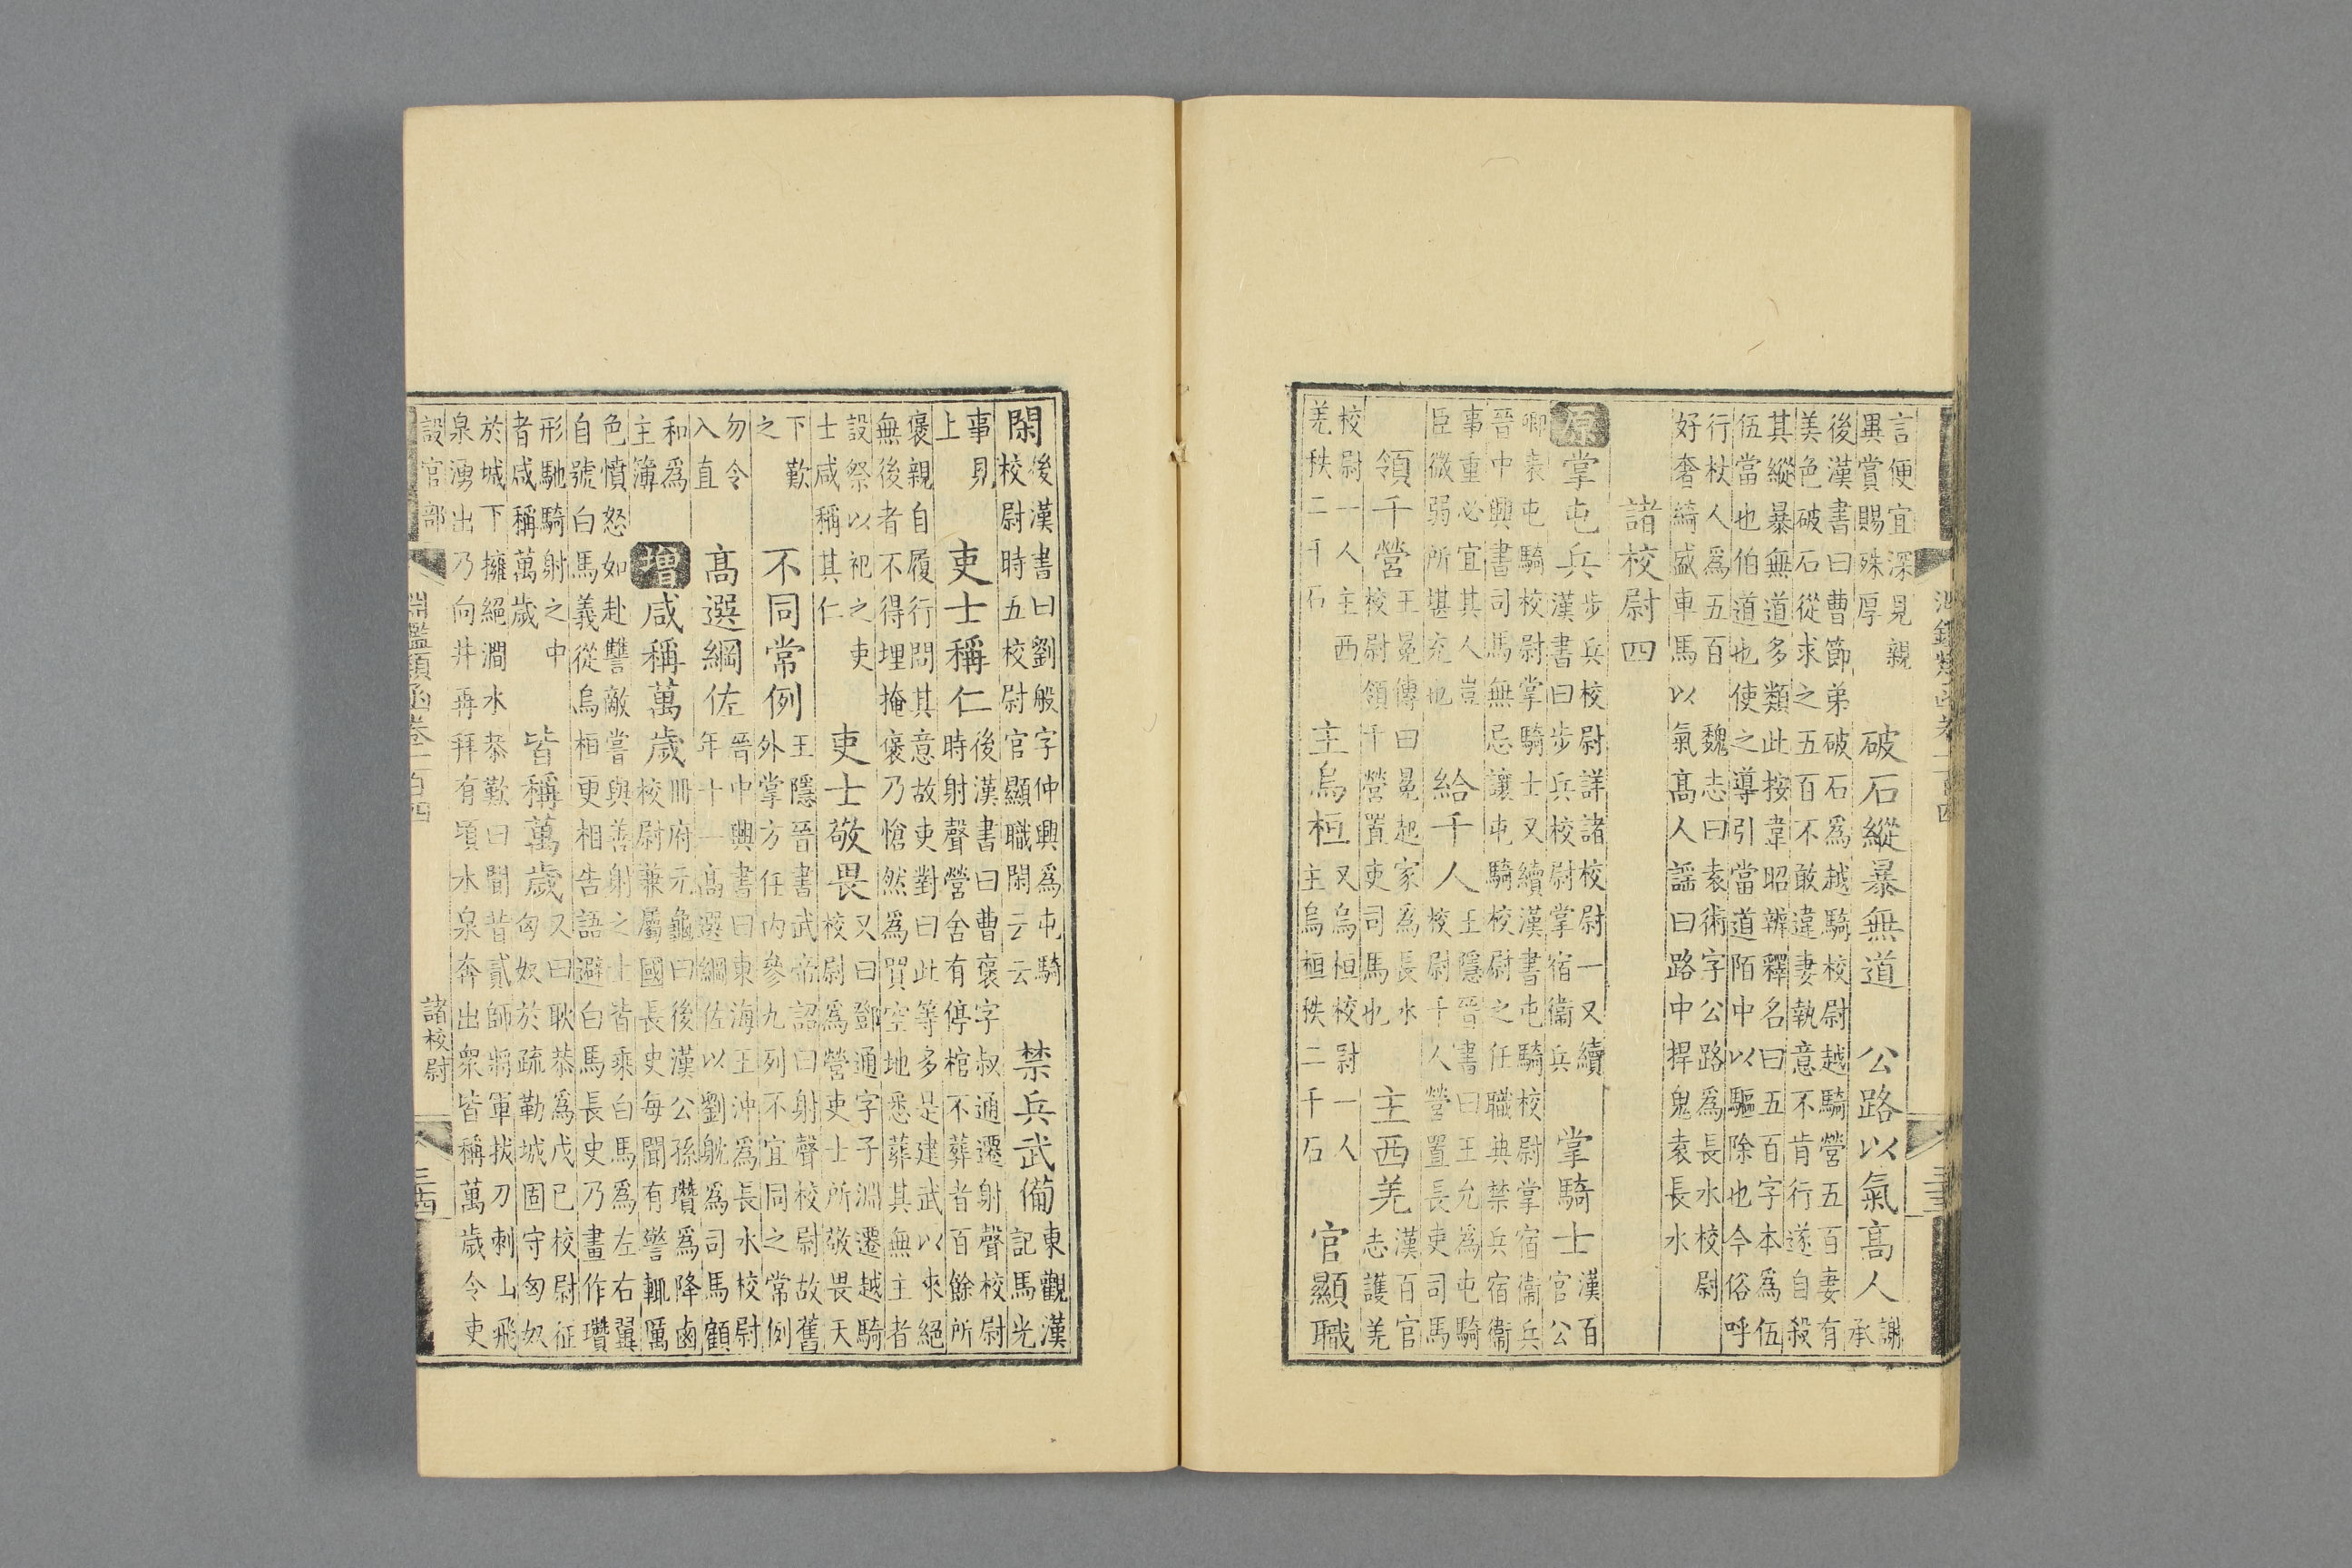 言便宜深見親異賞賜殊厚 破石縱暴無道 公路以氣高人 謝承
後漢書曰曹節弟破石爲越騎校尉越騎營五百妻有
美色破石從求之五百不敢違妻執意不肯行遂自殺
其縱暴無道多類此按韋昭辨釋名曰五百字本爲伍
伍當也伯道也使之導引當道陌中以驅除也今俗呼
行杖人爲五百 魏志曰袁術字公路爲長水校尉
好奢綺盛車馬以氣高人謠曰路中捍鬼袁長水
諸校尉四
原 掌屯兵 步兵校尉詳諸校尉一又續漢書曰步兵校尉掌宿衞兵 掌騎士 漢百官公
卿表屯騎校尉掌騎士又續漢書屯騎校尉掌宿衞兵
晉中興書司馬無忌讓屯騎校尉之任職典禁兵宿衞
事重必宜其人豈臣微弱所堪充也 給千人 王隱晉書曰王允爲屯騎校尉千人營置長吏司馬
領千營 王晃傳曰晃起家爲長水校尉領千營置吏司馬也 主西羌 漢百官志護羌
校尉一人主西羌秩二千石 主烏桓 又烏桓校尉一人主烏桓秩二千石 官顯職
淵鑑類函卷一百四
三十三
閑 後漢書曰劉般字仲興爲屯騎校尉時五校尉官顯職閑云云 禁兵武備 東觀漢記馬光
事見上 吏士稱仁 後漢書曰曹褒字叔通遷射聲校尉時射聲營舍有停棺不葬者百餘所
褒親自履行問其意故吏對曰此等多是建武以來絕
無後者不得埋掩褒乃愴然爲買空地悉葬其無主者
設祭以祀之吏士咸稱其仁 吏士敬畏 又曰鄧通字子淵遷越騎校尉爲營吏士所敬畏天
下歎之 不同常例 王隱晉書武帝詔曰射聲校尉故舊外掌方任內參九列不宜同之常例
勿令入直 高選綱佐 晉中興書曰東海王沖爲長水校尉年十一高選綱佐以劉䏜爲司馬顧
和爲主簿 增 咸稱萬歲 冊府元龜曰後漢公孫瓚爲降鹵校尉兼屬國長史每聞有警輒厲
色憤怒如赴讐敵嘗與善射之士皆乘白馬爲左右翼
自號白馬義從烏桓更相告語避白馬長史乃畫作瓚
形馳騎射之中者咸稱萬歲 皆稱萬歲 又曰耿恭爲戊已校尉征匈奴於疏勒城固守匈奴
於城下擁絕澗水恭歎曰聞昔貳師將軍拔刀刺山飛
泉湧出乃向井再拜有頃水泉奔出衆皆稱萬歲令吏
設官部 諸校尉
淵鑑類函卷一百四
三十四